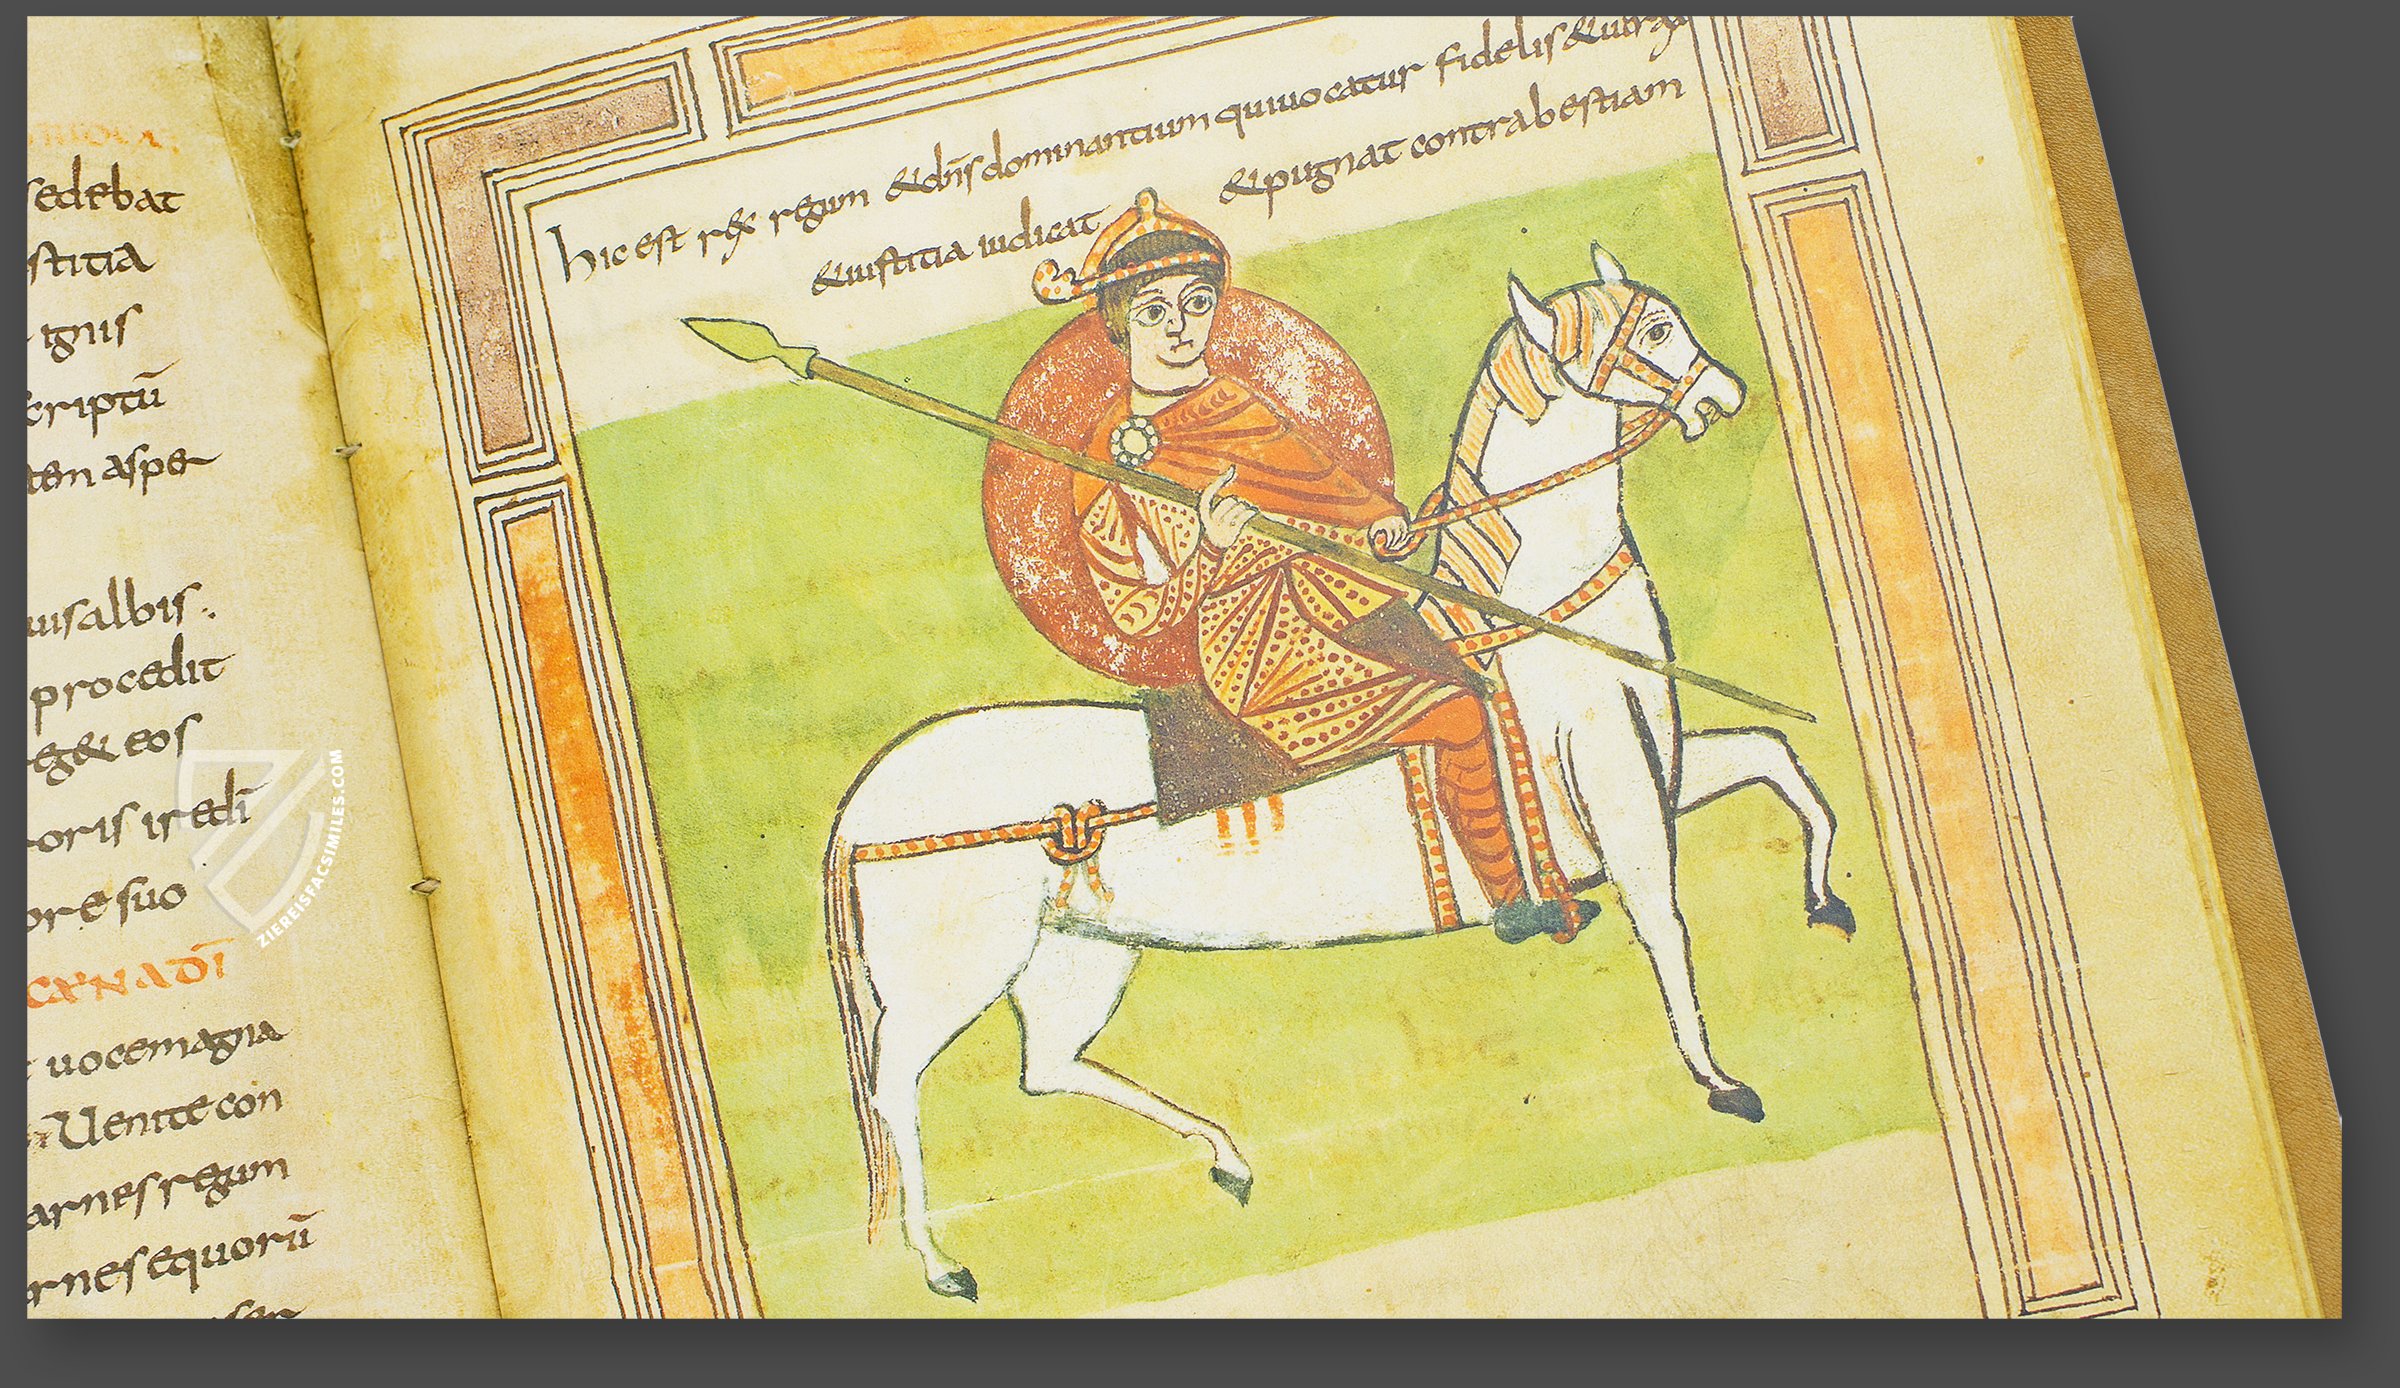 sedebat
stitia
ignis
criptū
tem asper
uis albis.
procedit
g& eos
oris ir edī
ore suo
CENA DĪ
uoce magna
Uenite con
arnes regum
rnes equorū
hic est rex regum &dn̄s dominantium qui uocatur fidelis &uerax
&iustitia iudicat &pugnat contra bestiam
ZIEREISFACSIMILES.COM